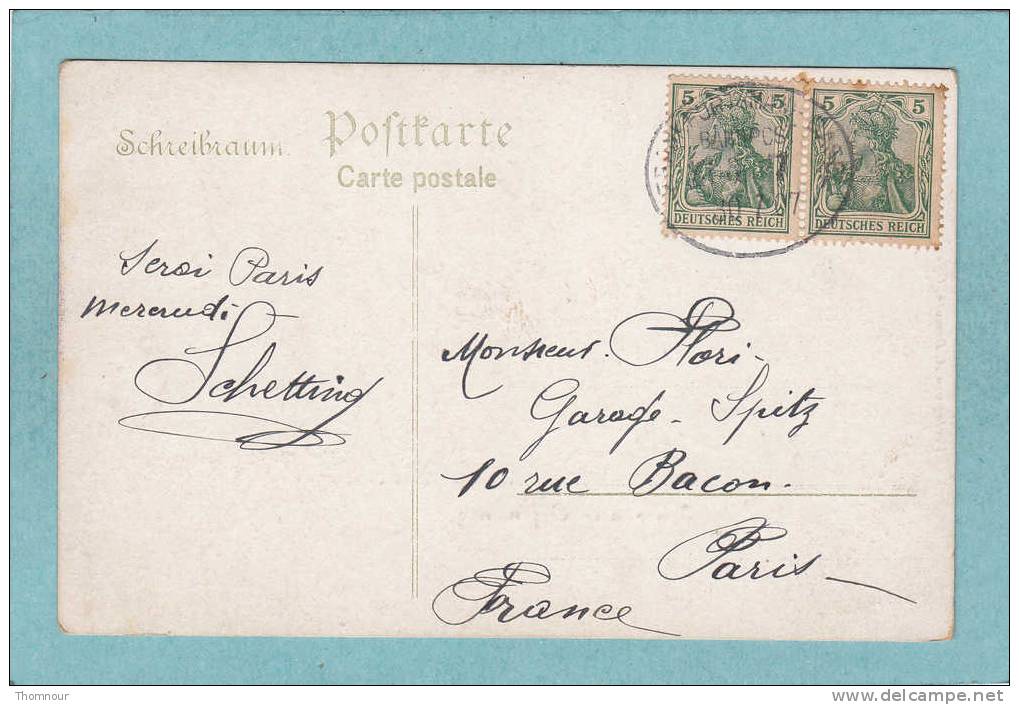 Schreibraum.
Postkarte
Carte postale
5 5
5 5
DEUTSCHES REICH
DEUTSCHES REICH
BAHNPOST
Serai Paris
mercredi
Schetting
Monsieur Flori-
Garage-Spitz
10 rue Bacon.
Paris
France
Thomnour
www.delcampe.net